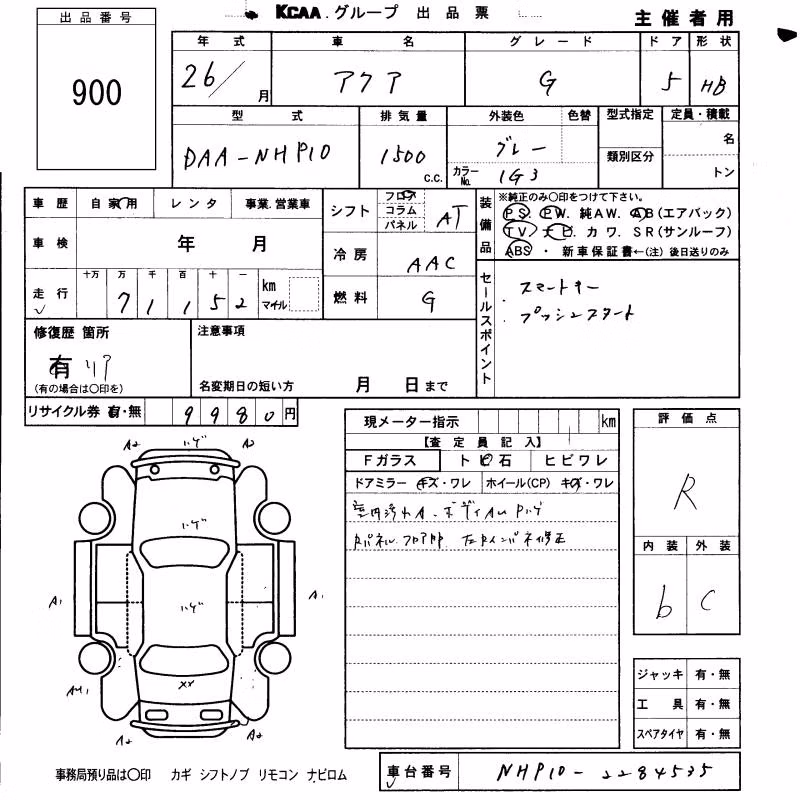 KCAA.グループ 出品票
主催者用
出品番号
900
年式 車名 グレード ドア 形状
26/月 アクア G 5 HB
型式 排気量 外装色 色替 型式指定 定員・積載
DAA-NHP10 1500c.c. グレー 名
カラーNo. 1G3 類別区分 トン
車歴 自家用 レンタ 事業.営業車
車検 年 月
走行 十万 万 千 百 十 一 km マイル
7 1 1 5 2
シフト フロア コラム パネル AT
冷房 AAC
燃料 G
装備品
※純正のみ○印をつけて下さい。
PS. PW. 純AW. AB(エアバック)
TV. ナビ. カワ. SR(サンルーフ)
ABS・新車保証書←(注)後日送りのみ
セールスポイント
スマートキー
プッシュスタート
修復歴 箇所
有 リア
(有の場合は○印を)
注意事項
名変期日の短い方 月 日まで
リサイクル券 有・無 9980円
現メーター指示 km
【査定員記入】
Fガラス トビ石 ヒビワレ
ドアミラー キズ・ワレ ホイール(CP) キズ・ワレ
室内汚れA.ボディAU Pハゲ
Rパネル.フロア凹 左Rインパネ修正
評価点
R
内装 外装
b C
A2 ハゲ A2
ハゲ
A1 ハゲ A1
XX
A2 A2
ジャッキ 有・無
工具 有・無
スペアタイヤ 有・無
事務局預り品は○印 カギ シフトノブ リモコン ナビロム
車台番号 NHP10-2284535